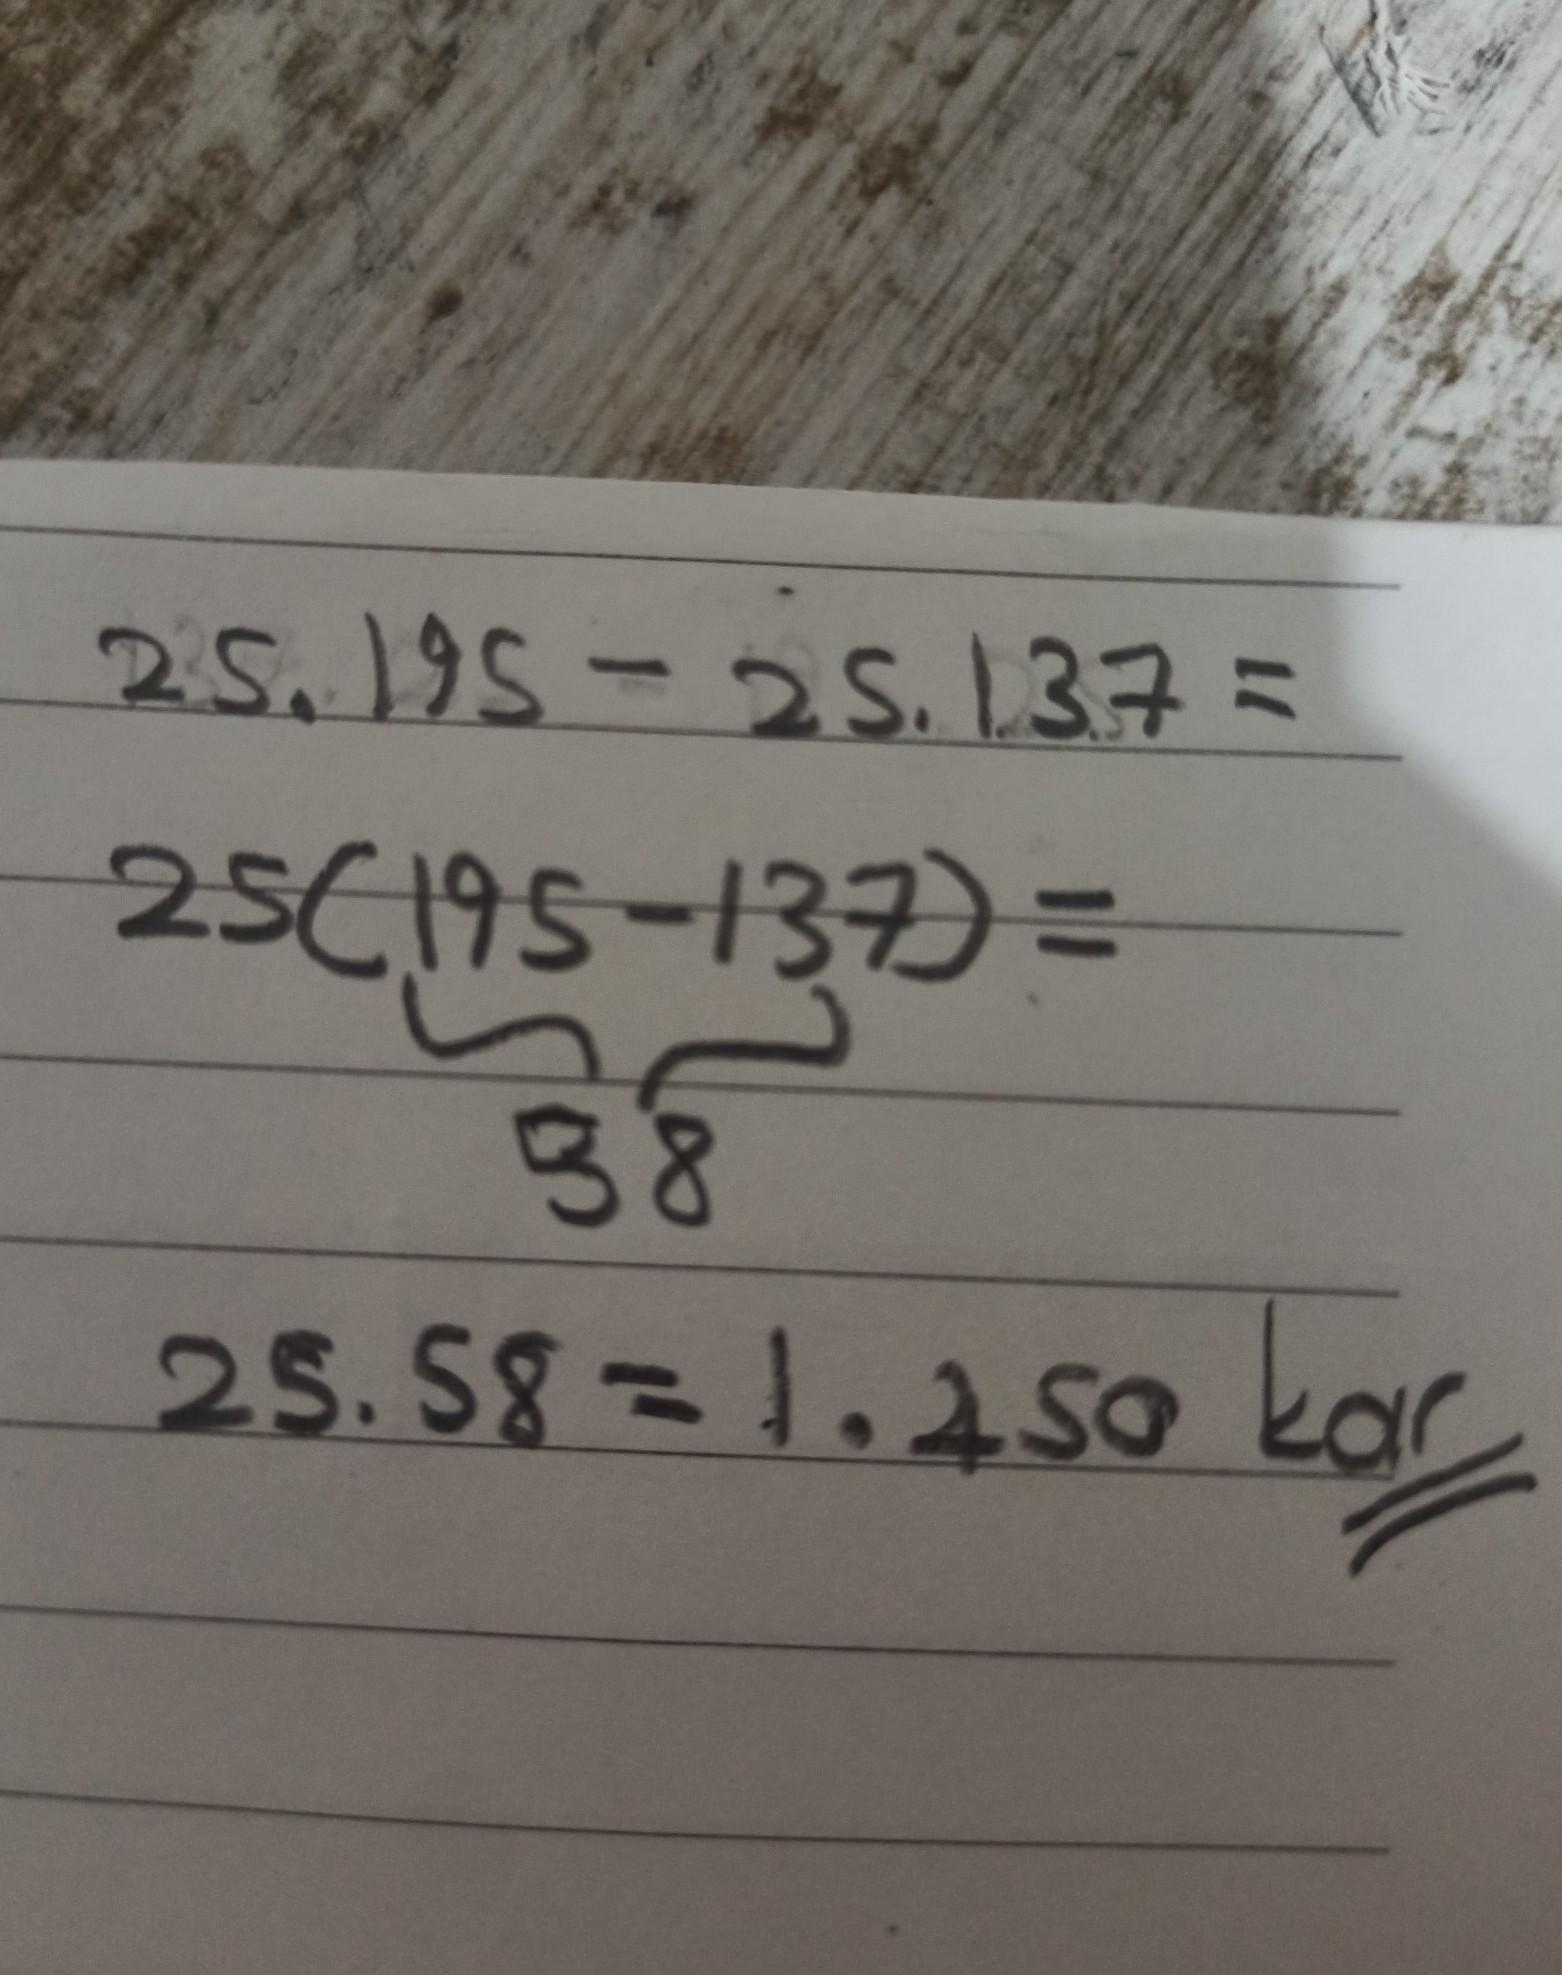 25.195 - 25.137 =
25(195-137) =
58
25.58 = 1.450 kar